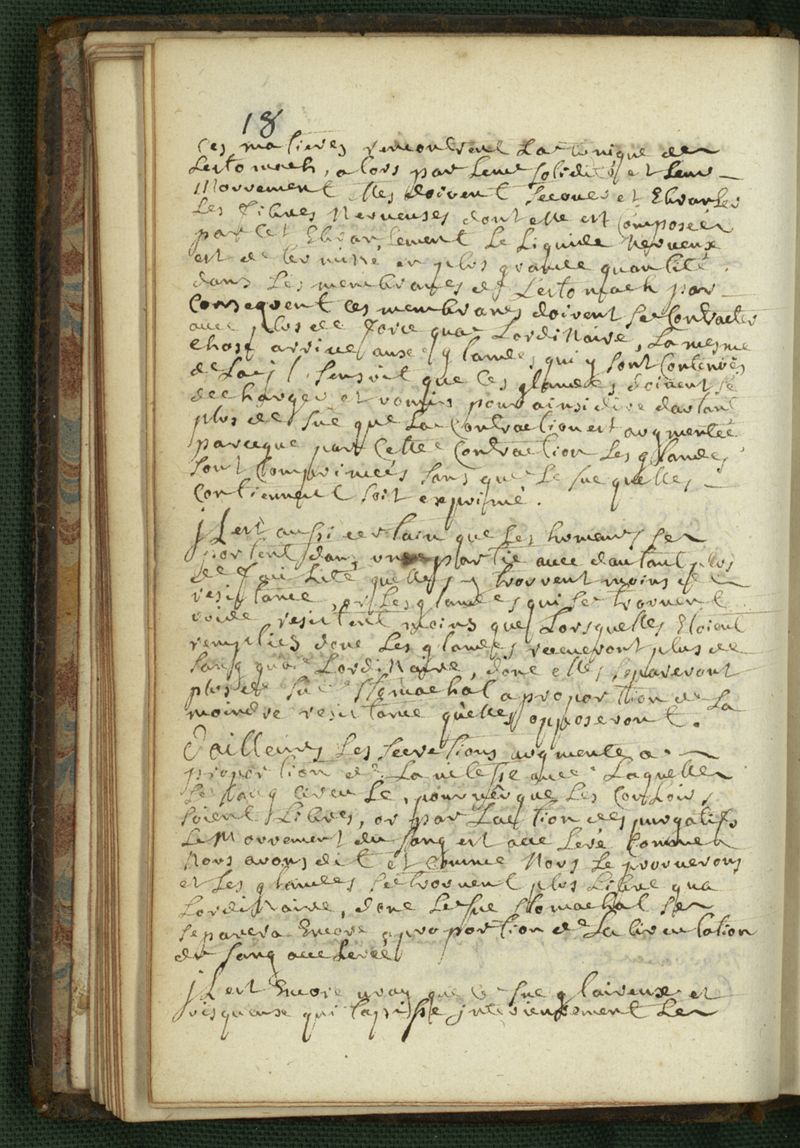 18
ces matieres rencontrent la tunique de
Lestomach, alors par leur solidité et leur
Mouvement elles doivent secouer et Ebranler
Les fibres Nerveuses dont elle est Composeé
par cet Ebranlement Le Liquide Nerveux
est determiné en plus grande quantité
dans Les membranes de Lestomach par
Consequent ces membranes doivent se Contracter
avec plus de force qua Lordinaire, La mesme
chose arrive aux glandes qui y sont Contenües
de La il sensuit que ces glandes doivent se
decharger et vomir pour ainsi dire dautant
plus de suc que La Contraction est augmenteé
parceque par Cette Contraction Les glandes
sont Comprimeés sans que Le suc quelles
Contiennent soit exprimé.
jl est aussi certain que Les humeurs se
portent dans une partie avec dautant plus
de facilité quelles y trouvent moins de
resistance, or Les glandes qui se trouvent
vuide resistent moins que Lorsquelles Etoient
remplies donc Les glandes recevront plus de
sang qua Lordinaire, donc elles separeront
plus de suc Stomachal a proportion de La
moindre resistance quelles opposeront.
Dailleurs Les secretions augmente a
proportion de La vitesse avec Laquelle
Le sang circule, pourvû que Les Couloirs
soient Libres, or par Laction des purgatifs
Le Mouvement du sang est acceleré Comme
Nous avons dit et comme Nous Le prouverons
et Les glandes se trouvent plus Libre qua
Lordinaire, donc Le suc stomachal se
separera Encore a proportion de La circulation
du sang acceleréé
jl est Encore vray que Le suc glaireux et
visqueux qui tapisse interieurement Le